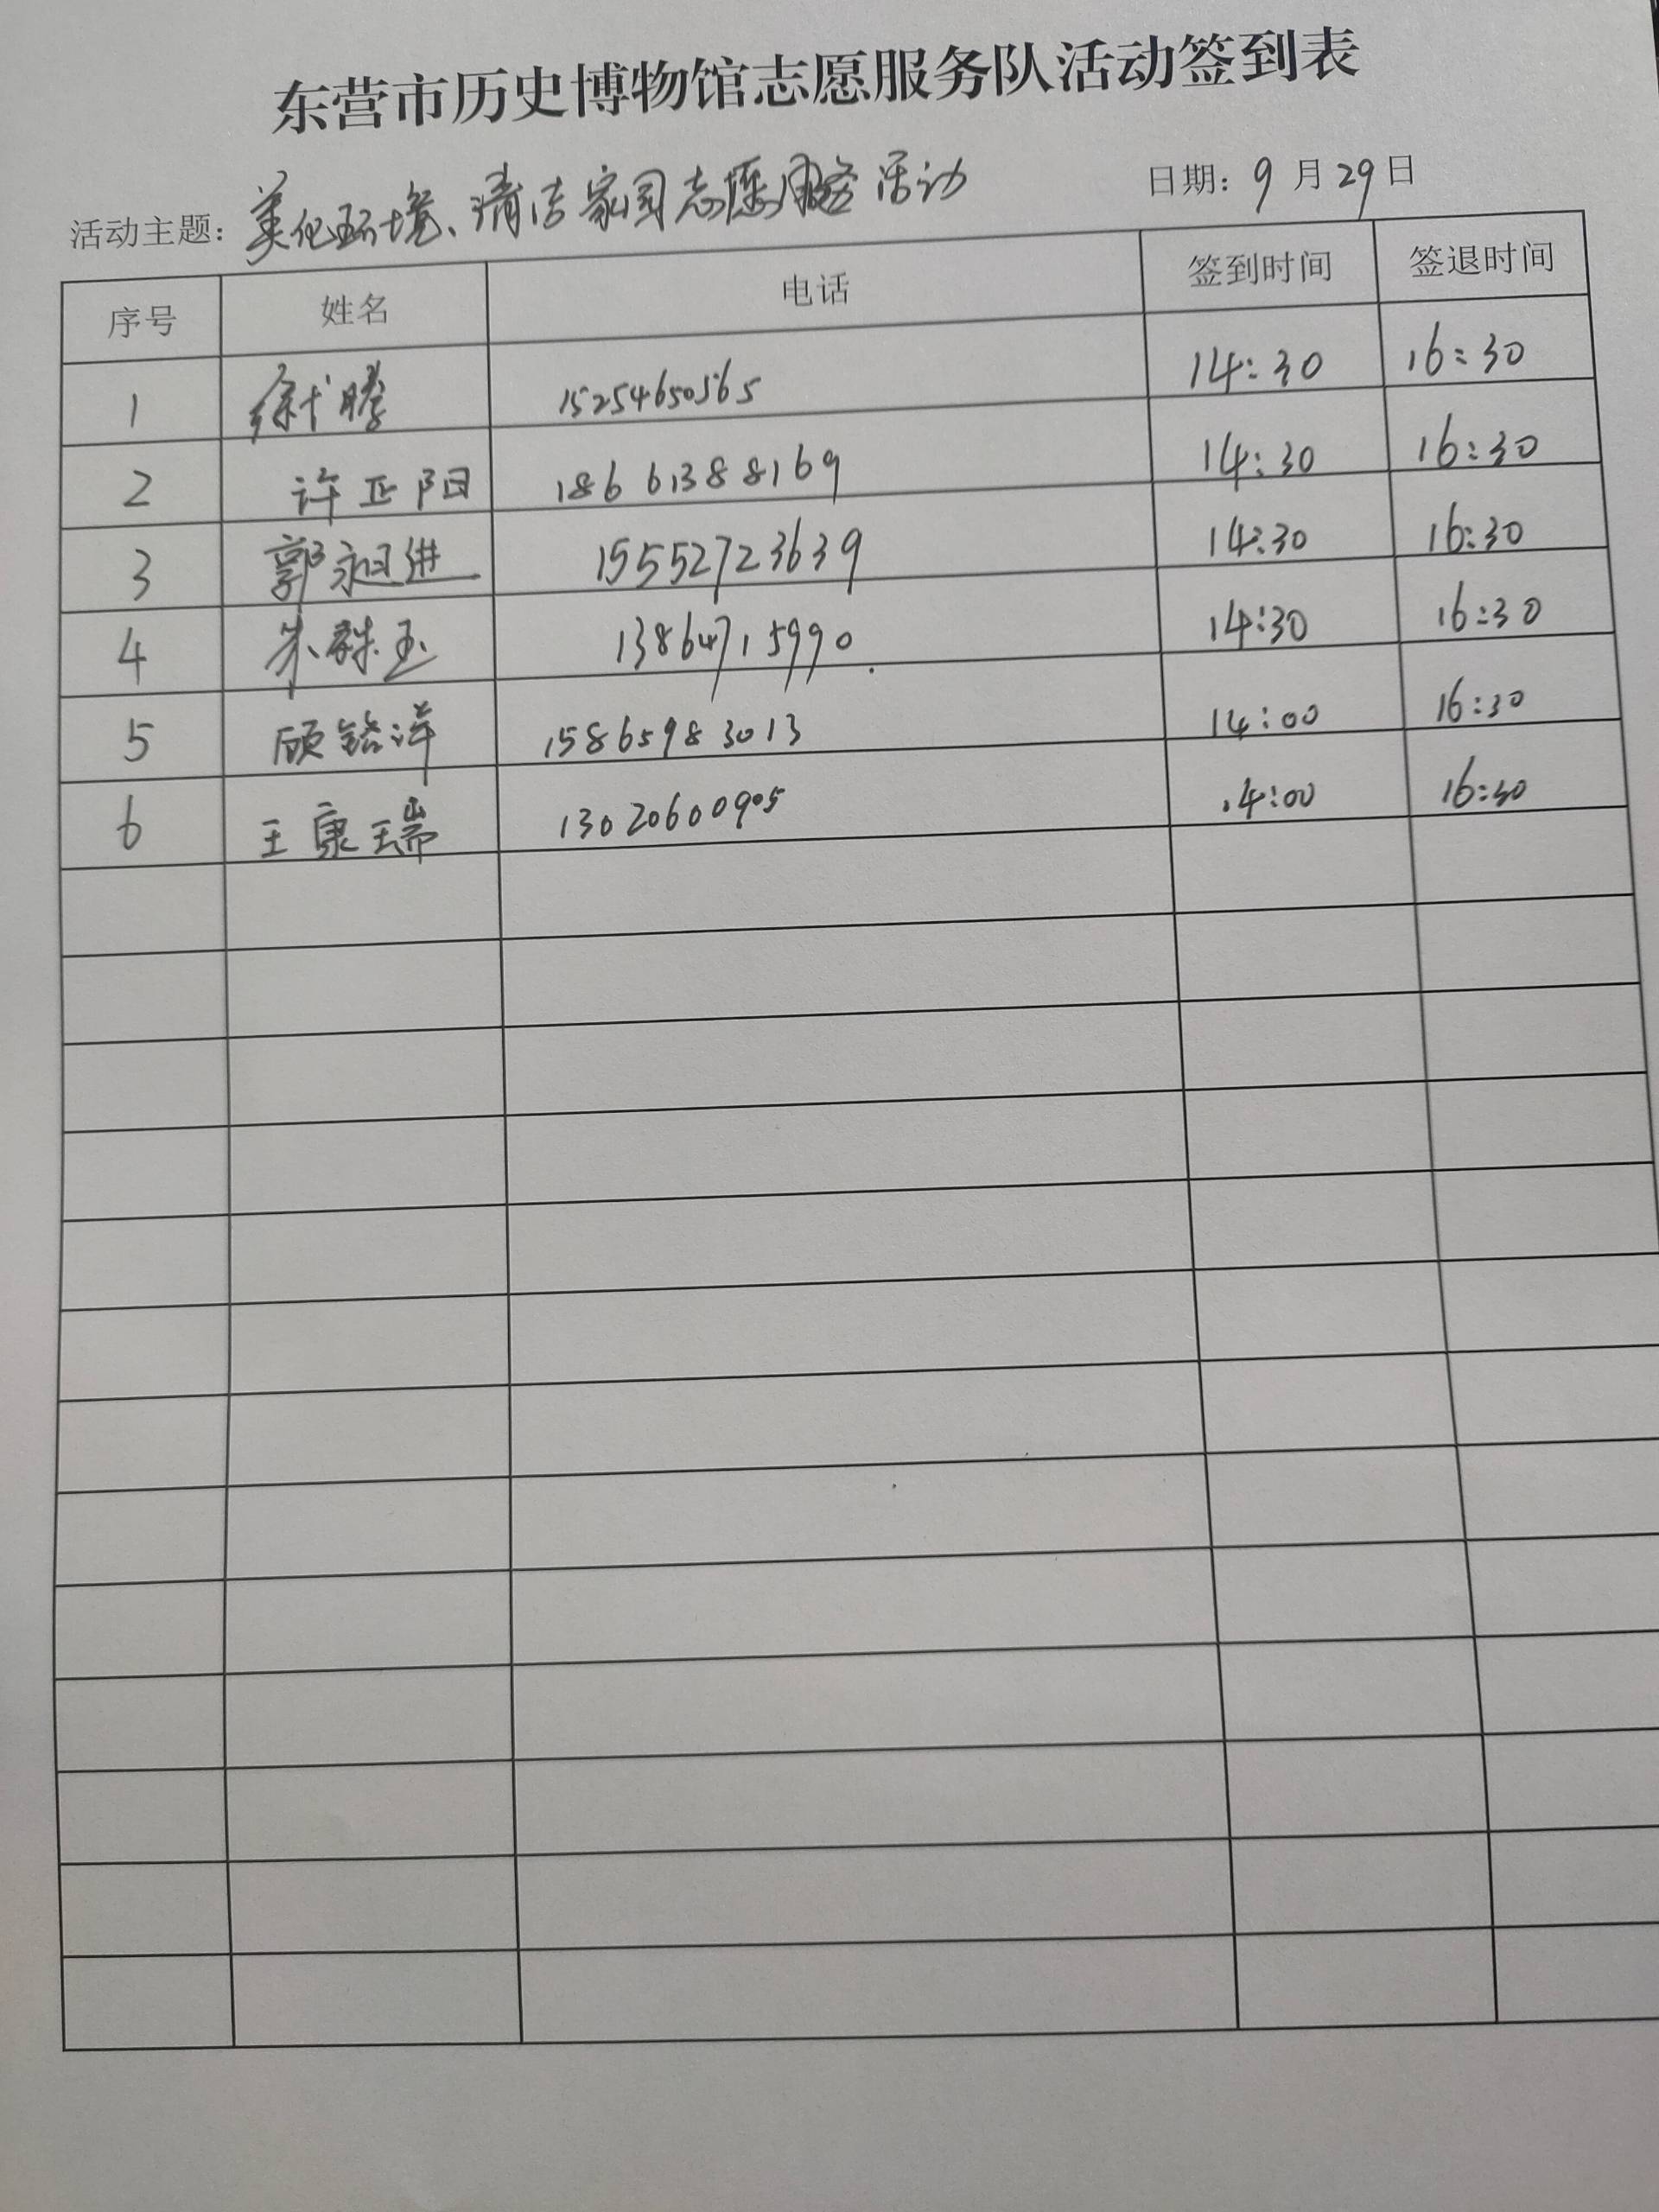 东营市历史博物馆志愿服务队活动签到表
活动主题：美化环境、清洁家园志愿服务活动 日期：9月29日
序号 姓名 电话 签到时间 签退时间
1 徐腾 15254650565 14:30 16:30
2 许正阳 18661388169 14:30 16:30
3 郭昶进 15552723639 14:30 16:30
4 朱群玉 13864715990. 14:30 16:30
5 顾铭洋 15865983013 14:00 16:30
6 王康瑞 13020600905 14:00 16:30